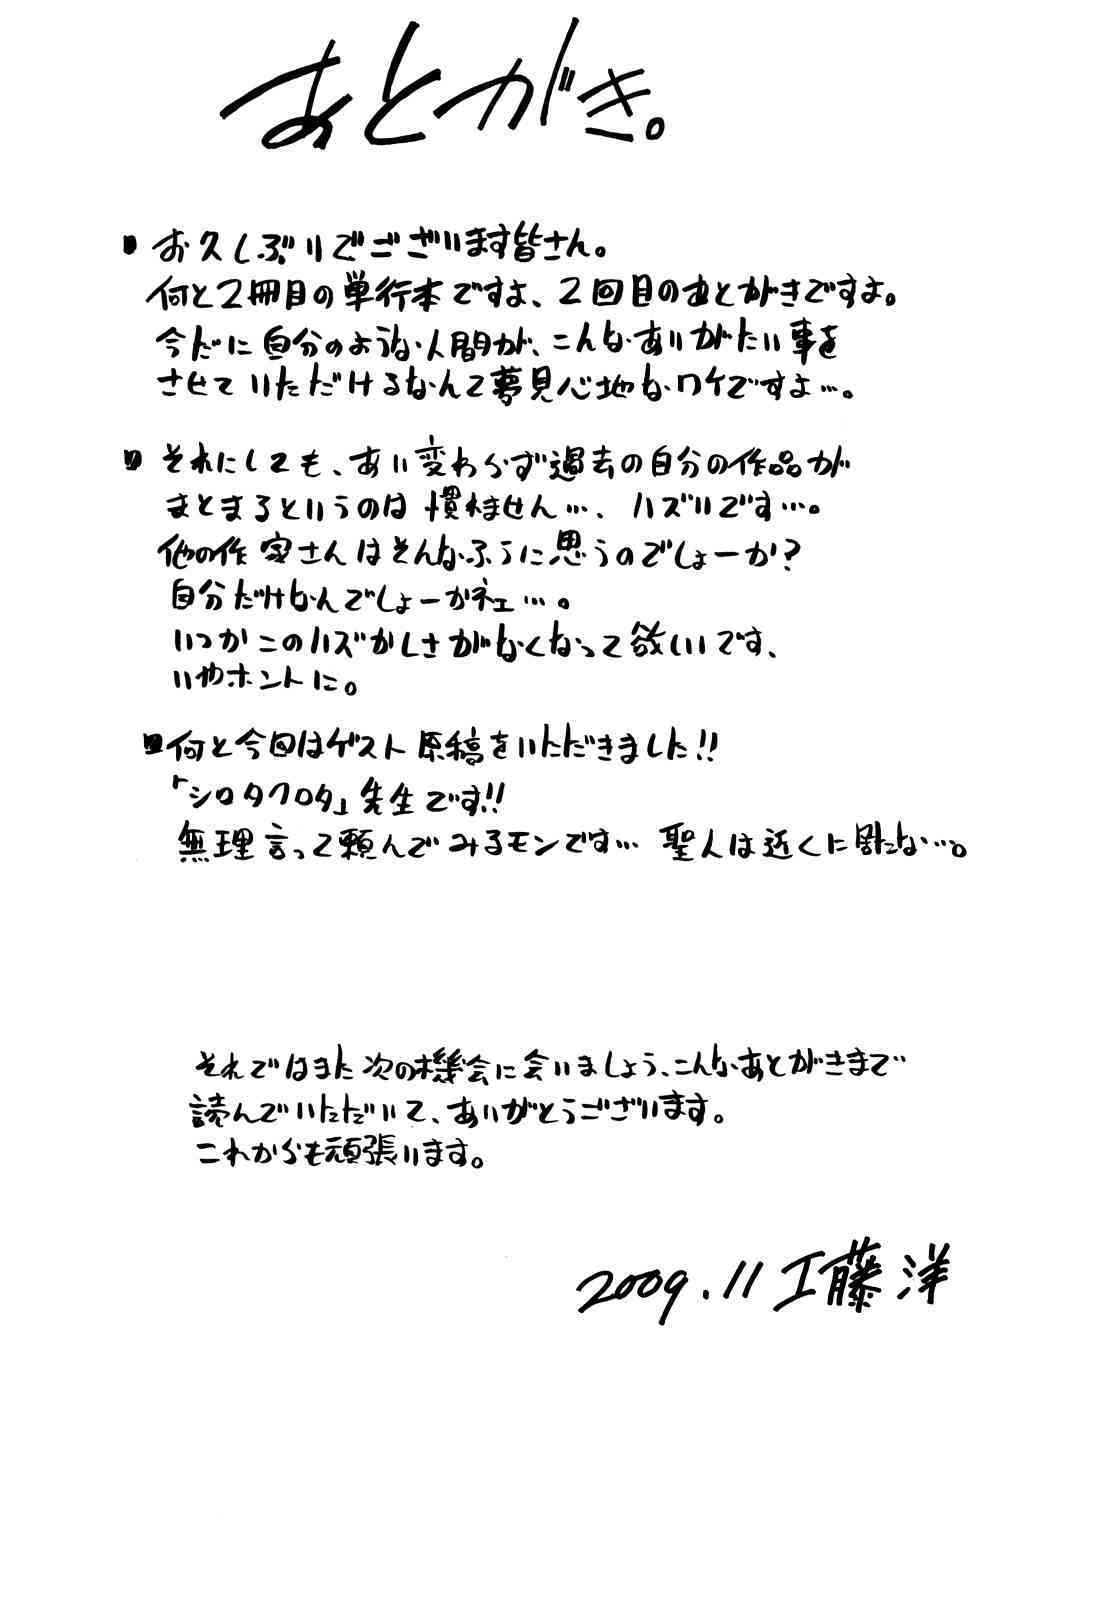 あとがき。
お久しぶりでございます皆さん。
何と2冊目の単行本ですよ、2回目のあとがきですよ。
今だに自分のような人間が、こんなありがたい事を
させていただけるなんて夢見心地なワケですよ…。
それにしても、あい変わらず過去の自分の作品が
まとまるというのは慣れません…、ハズいです…。
他の作家さんはそんなふうに思うのでしょーか?
自分だけなんでしょーかネェ…。
いつかこのハズかしさがなくなって欲しいです、
いやホントに。
何と今回はゲスト原稿をいただきました!!
「シロタクロタ」先生です!!
無理言って頼んでみるモンです… 聖人は近くに居たな…。
それではまた次の機会に会いましょう、こんなあとがきまで
読んでいただいて、ありがとうございます。
これからも頑張います。
2009.11 工藤洋